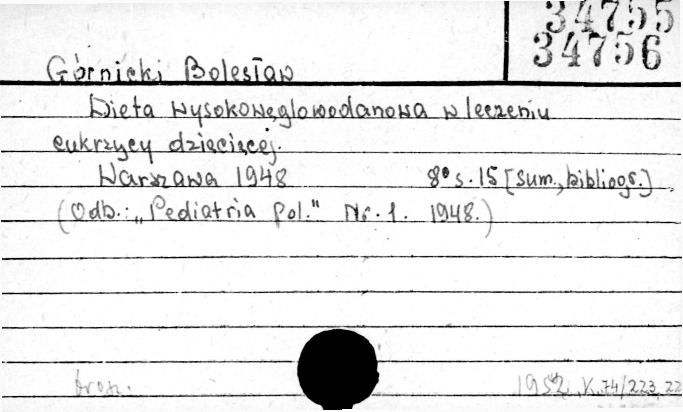 34755
34756
Górnicki Bolesław
Dieta wysokowęglowodanowa w leczeniu
cukrzycy dziecięcej.
Warszawa 1948 8° s. 15 [Sum., bibliogr.]
(Odb.: „Pediatria Pol." Nr. 1. 1948.)
brosz.
1952.K.74/223,22